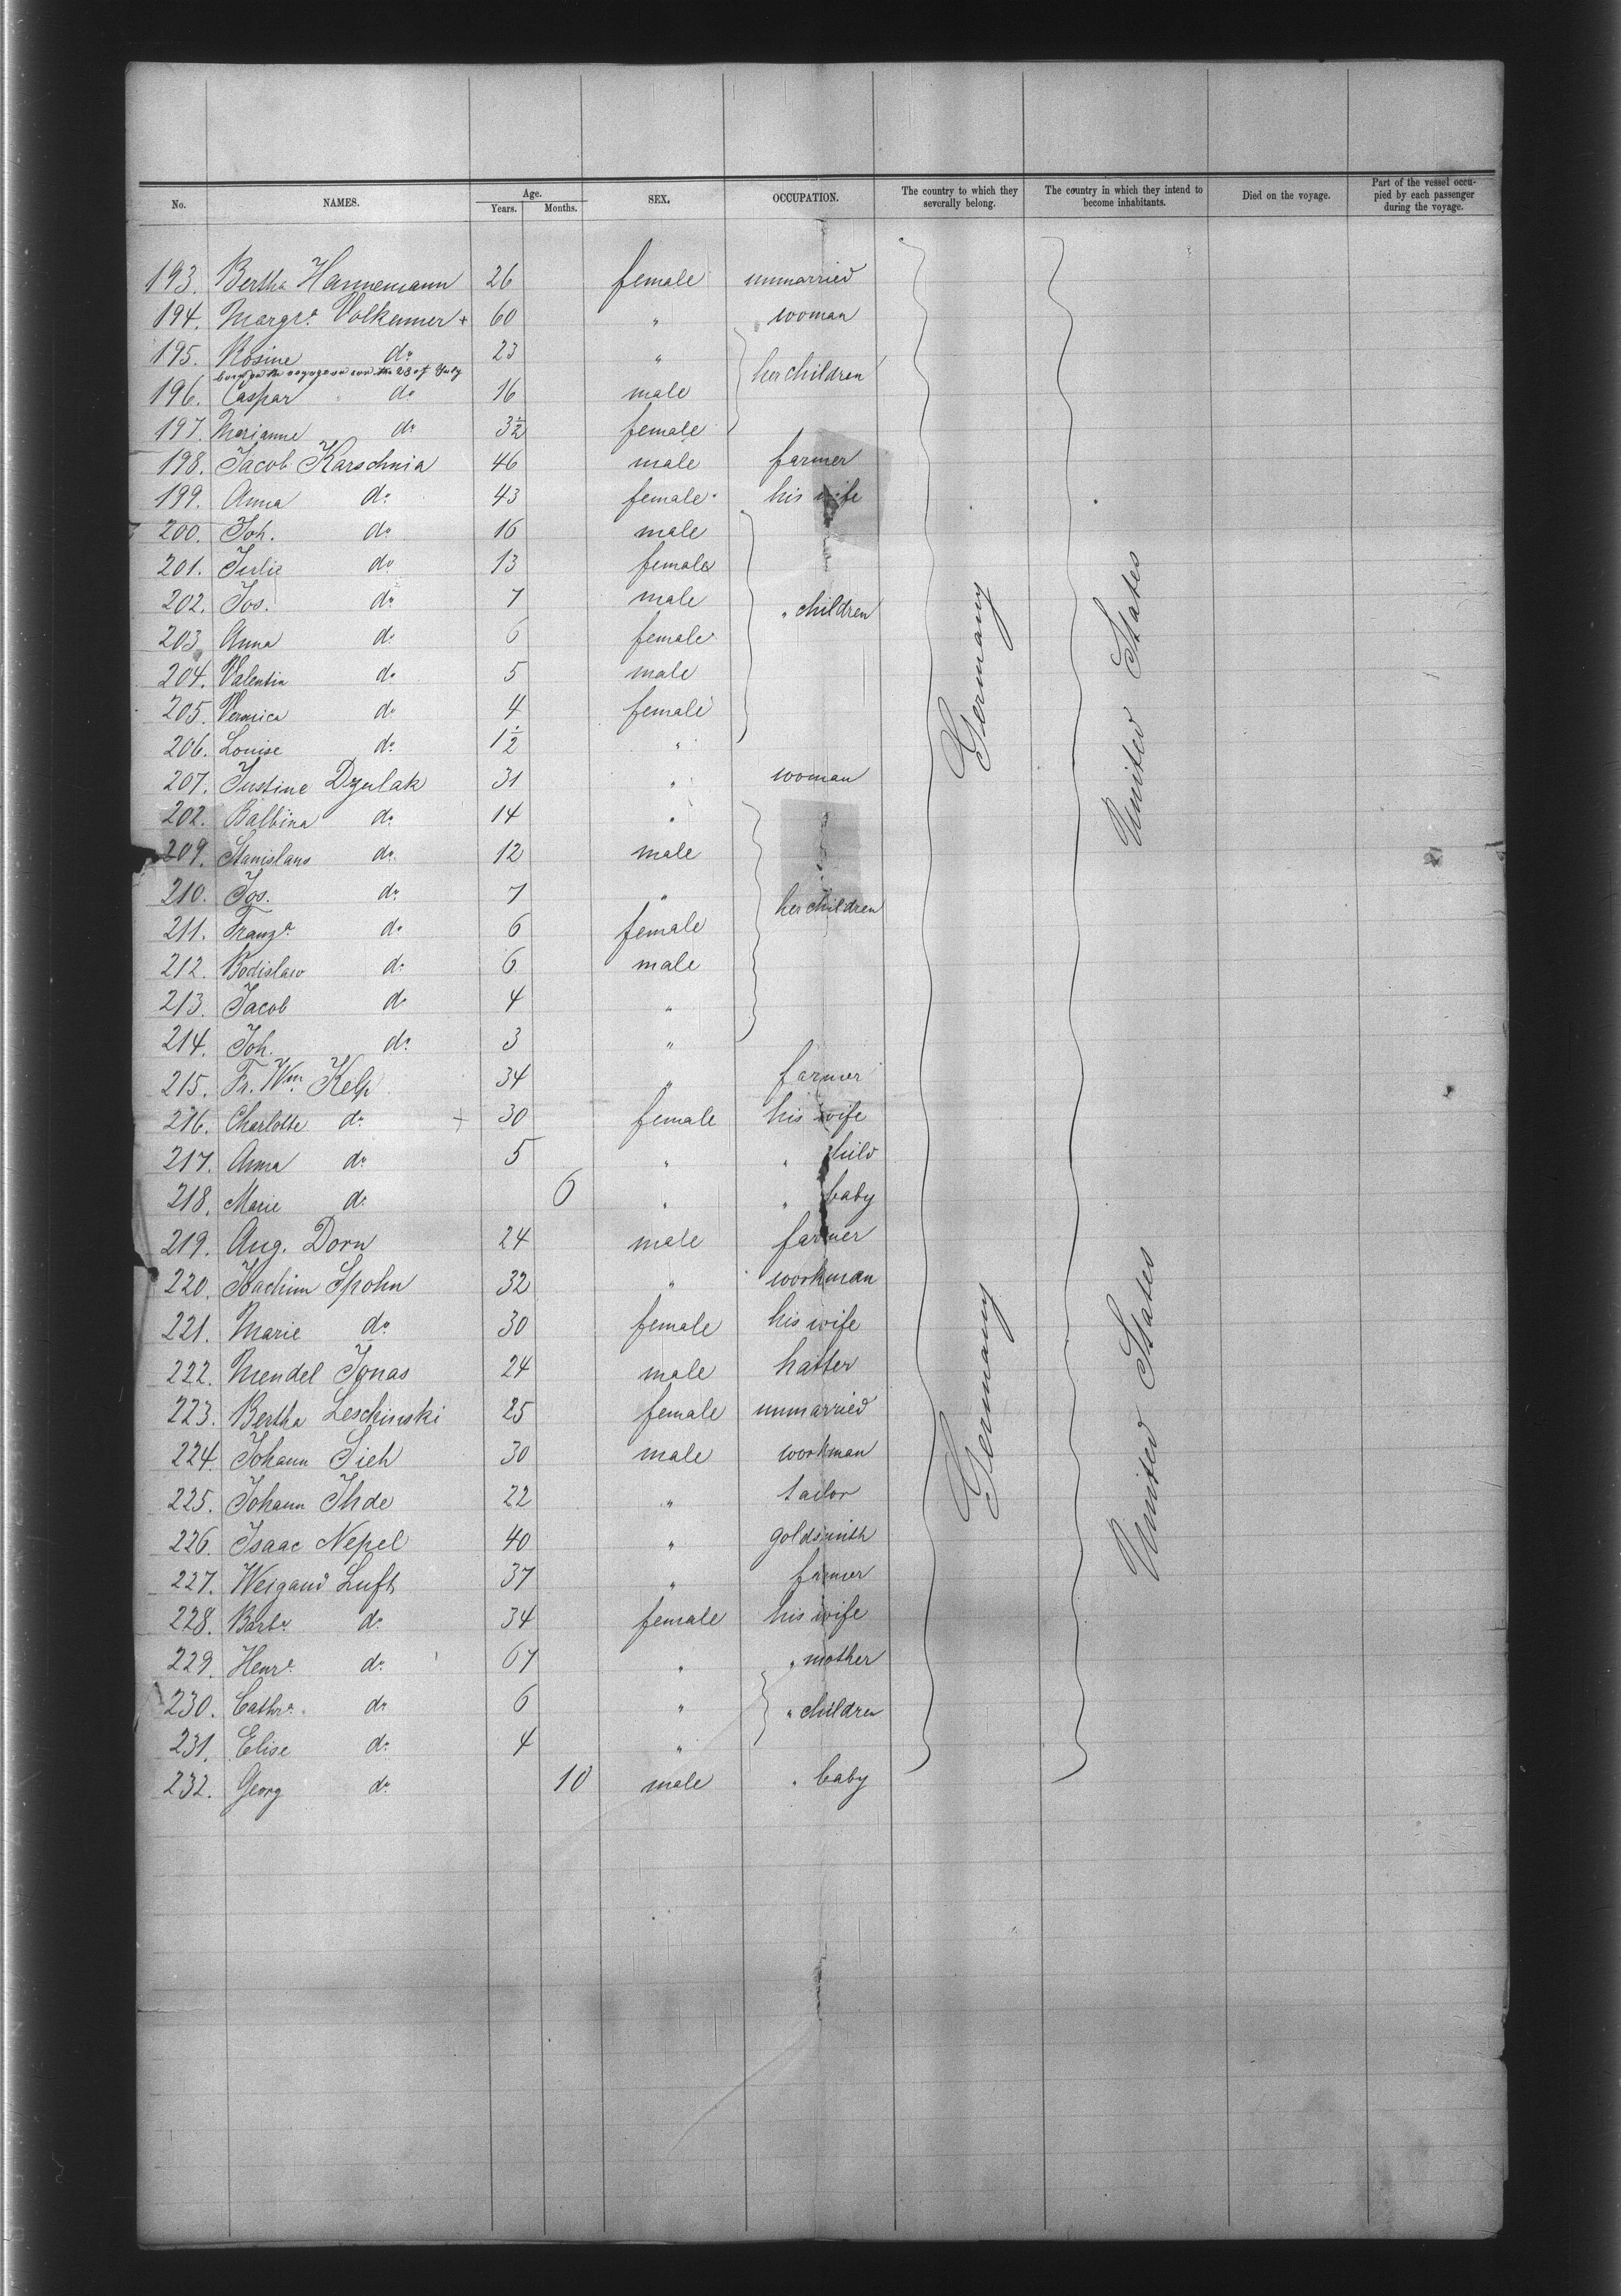 No. NAMES. Age. Years. Months. SEX. OCCUPATION. The country to which they severally belong. The country in which they intend to become inhabitants. Died on the voyage. Part of the vessel occupied by each passenger during the voyage.
193. Bertha Hannemann 26 female unmarried
194. Margr.a Volkenner + 60 " woman
195. Rosine do 23 "
the 23 of July
196. Caspar do 16 male her children
197. Marianne do 3½ female
198. Jacob Karschnia 46 male farmer
199. Anna do 43 female his wife
200. Joh. do 16 male
201. Julie do 13 female
202. Jos. do 7 male " children
203 Anna do 6 female
204. Valentin do 5 male
205. Veronica do 4 female
206. Louise do 1½ "
207. Justine Dzulak 31 " woman
202. Balbina do 14 "
209. Stanislaus do 12 male
210. Jos. do 7 " her children
211. Franz.a do 6 female
212. Bodislaw do 6 male
213. Jacob do 4 "
214. Joh. do 3 "
215. Fr. Wm. Kelp 34 " farmer
216. Charlotte do + 30 female his wife
217. Anna do 5 " " child
218. Marie do 6 " " baby
219. Aug. Dorn 24 male farmer
220. Joachim Spohn 32 " workman
221. Marie do 30 female his wife
222. Mendel Jonas 24 male hatter
223. Bertha Leschinski 25 female unmarried
224. Johann Sieh 30 male workman
225. Johann Ihde 22 " tailor
226. Isaac Nepel 40 " goldsmith
227. Weigand Luft 37 " farmer
228. Barb.a do 34 female his wife
229. Henr.e do 67 " " mother
230. Cathr.e do 6 " " children
231. Elise do 4 "
232. Georg do 10 male " baby
Germany
United States
Germany
United States